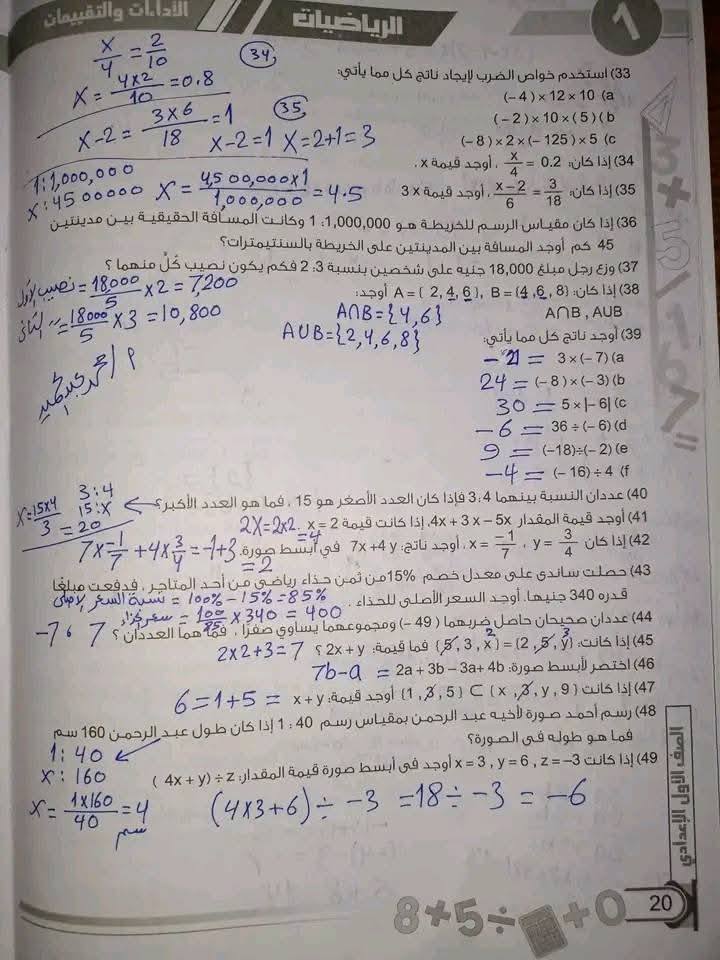 الأداءات والتقييمات
الرياضيات
1
x/4 = 2/10
34
x = 4x2/10 = 0.8
35
x-2 = 3x6/18 = 1 x-2=1 x=2+1=3
1:1,000,000
x:4500000 x = 4,500,000x1/1,000,000 = 4.5
33) استخدم خواص الضرب لإيجاد ناتج كل مما يأتي:
a) (-4) × 12 × 10
b) (-2) × 10 × (5)
c) (-8) × 2 × (-125) × 5
34) إذا كان: x/4 = 0.2 ، أوجد قيمة x.
35) إذا كان: x-2/6 = 3/18 ، أوجد قيمة 3 x
36) إذا كان مقياس الرسم للخريطة هو 1,000,000: 1 وكانت المسافة الحقيقية بين مدينتين
45 كم أوجد المسافة بين المدينتين على الخريطة بالسنتيمترات؟
37) وزع رجل مبلغ 18,000 جنيه على شخصين بنسبة 3: 2 فكم يكون نصيب كُلٌ منهما ؟
نصيب الأول = 18,000/5 x 2 = 7,200
38) إذا كان: A = { 2, 4, 6}, B = {4, 6, 8} أوجد:
A∩B , A∪B
A∩B={4,6}
A∪B={2,4,6,8}
الثانى = 18000/5 x 3 = 10,800
39) أوجد ناتج كل مما يأتي:
a) 3 × (-7) = -21
b) (-8) × (-3) = 24
c) 5 × |-6| = 30
d) 36 ÷ (-6) = -6
e) (-18) ÷ (-2) = 9
f) (-16) ÷ 4 = -4
40) عددان النسبة بينهما 4: 3 فإذا كان العدد الأصغر هو 15 ، فما هو العدد الأكبر؟
3:4
15:x
x = 15x4/3 = 20
41) أوجد قيمة المقدار 4x + 3 x - 5x، إذا كانت قيمة x = 2.
2x=2x2=4
42) إذا كان x = -1/7 , y = 3/4 ، أوجد ناتج: 7x + 4y في أبسط صورة.
7x-1/7 + 4x3/4 = -1+3 = 2
43) حصلت ساندى على معدل خصم 15% من ثمن حذاء رياضي من أحد المتاجر ، فدفعت مبلغًا
قدره 340 جنيها. أوجد السعر الأصلى للحذاء .
100% - 15% = 85% = نسبة السعر
100/85 x 340 = 400
44) عددان صحيحان حاصل ضربهما (49 -) ومجموعهما يساوي صفرًا ، فما هما العددان ؟
7 ، -7
45) إذا كانت: {5, 3, x} = {2, 5, y} فما قيمة: 2x + y ؟
2 3
2x2+3=7
46) اختصر لأبسط صورة: 2a + 3b - 3a + 4b = 7b-a
47) إذا كانت {1, 3, 5} ⊂ {x, 3, y, 9} أوجد قيمة: x + y = 1+5=6
48) رسم أحمد صورة لأخيه عبد الرحمن بمقياس رسم 40 : 1 إذا كان طول عبد الرحمن 160 سم
فما هو طوله في الصورة؟
1:40
x:160
x = 1x160/40 = 4 سم
49) إذا كانت x = 3 , y = 6 , z = -3 أوجد في أبسط صورة قيمة المقدار: (4x + y) ÷ z
(4x3+6) ÷ -3 = 18 ÷ -3 = -6
الصف الأول الإعدادي
8+5÷ +0
20